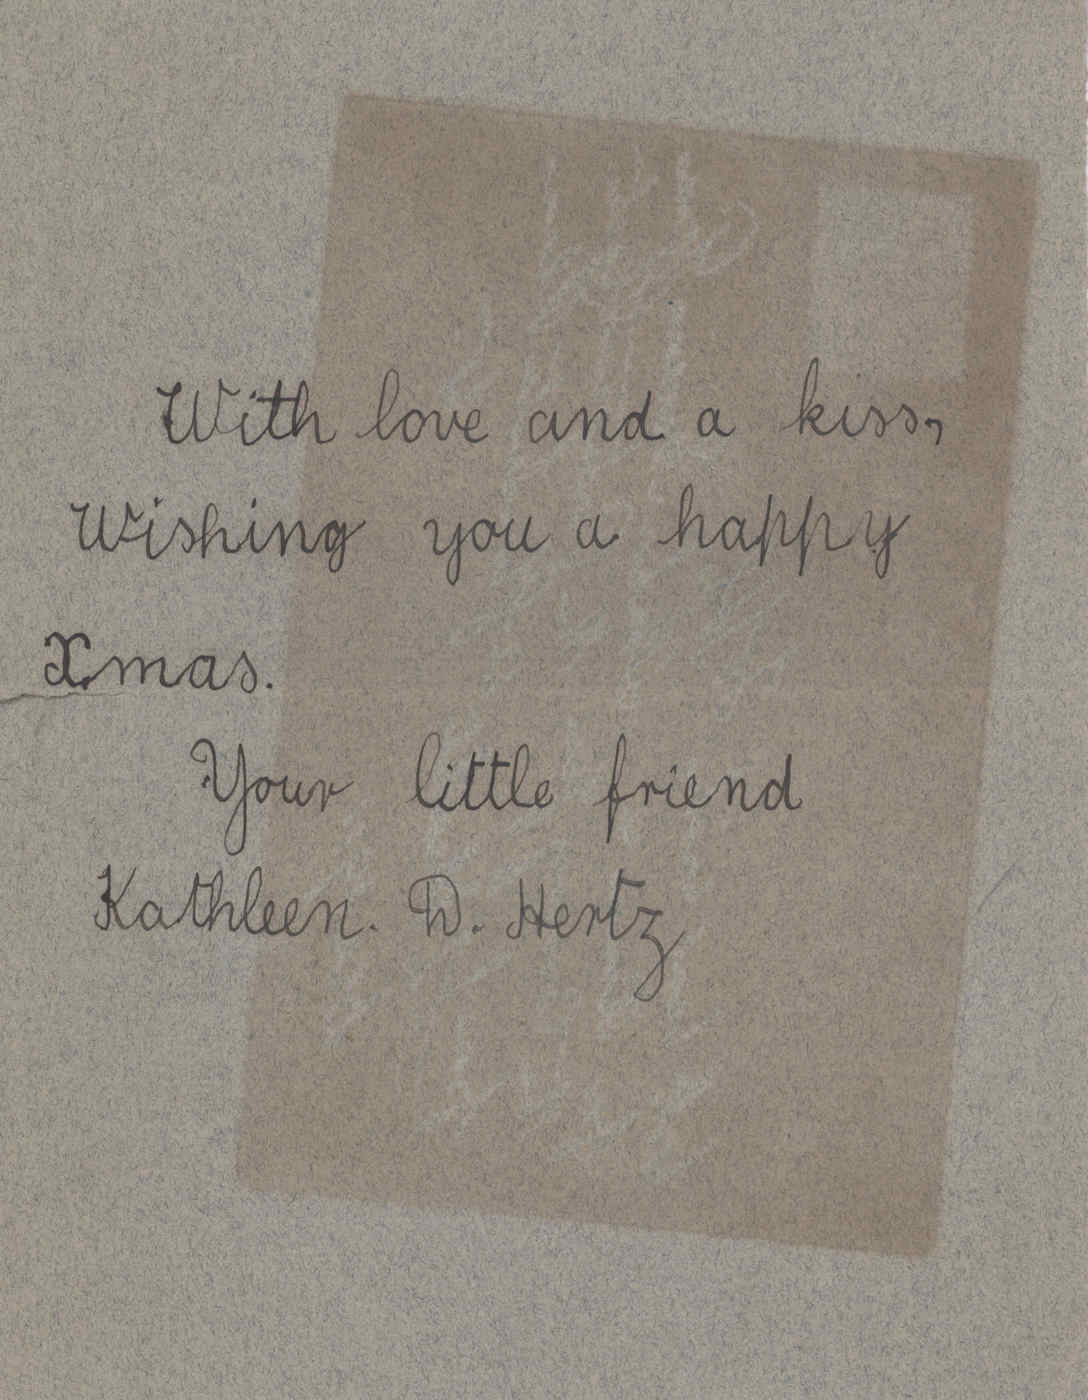 With love and a kiss,
Wishing you a happy
Xmas.
Your little friend
Kathleen. D. Hertz